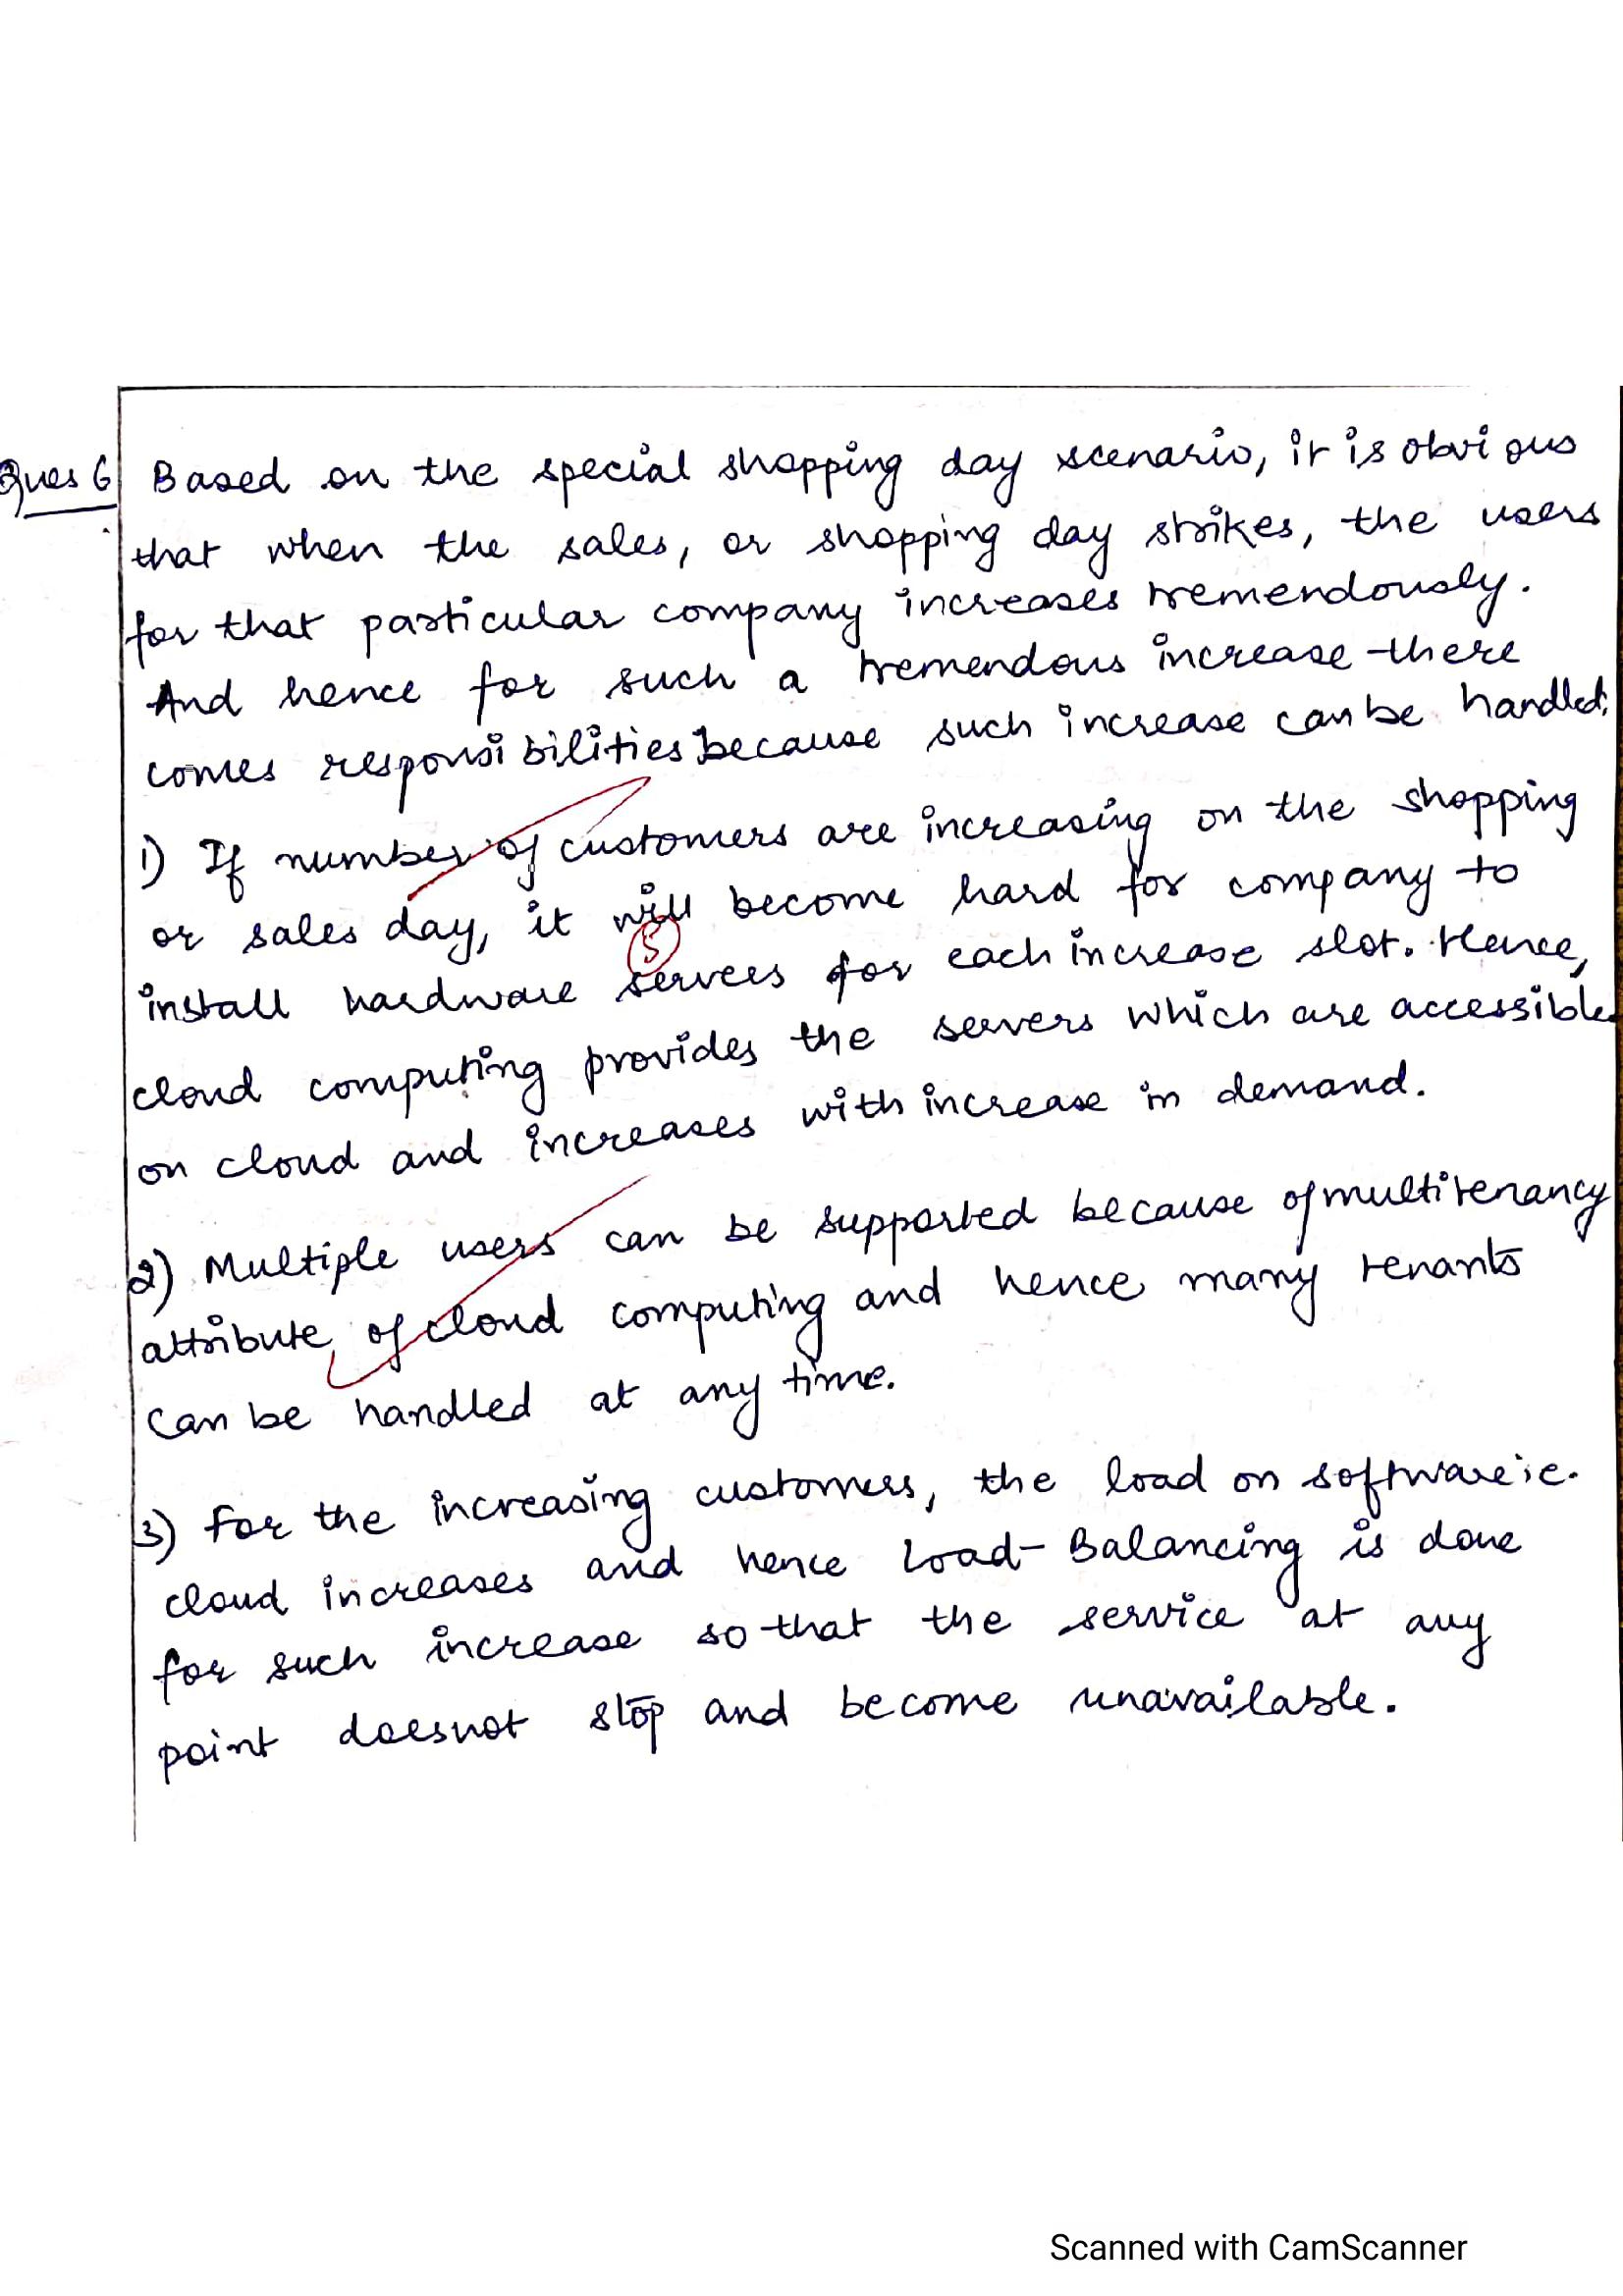 Ques 6 Based on the special shopping day scenario, it is obvious
that when the sales, or shopping day strikes, the users
for that particular company increases tremendously.
And hence for such a tremendous increase there
comes responsibilities because such increase can be handled.
1) If number of customers are increasing on the shopping
or sales day, it will become hard for company to
5
install hardware servers for each increase slot. Hence,
cloud computing provides the servers which are accessible
on cloud and increases with increase in demand.
2) Multiple users can be supported because of multitenancy
attribute of cloud computing and hence many tenants
can be handled at any time.
3) For the increasing customers, the load on software i.e.
cloud increases and hence Load-Balancing is done
for such increase so that the service at any
point doesnot stop and become unavailable.
Scanned with CamScanner